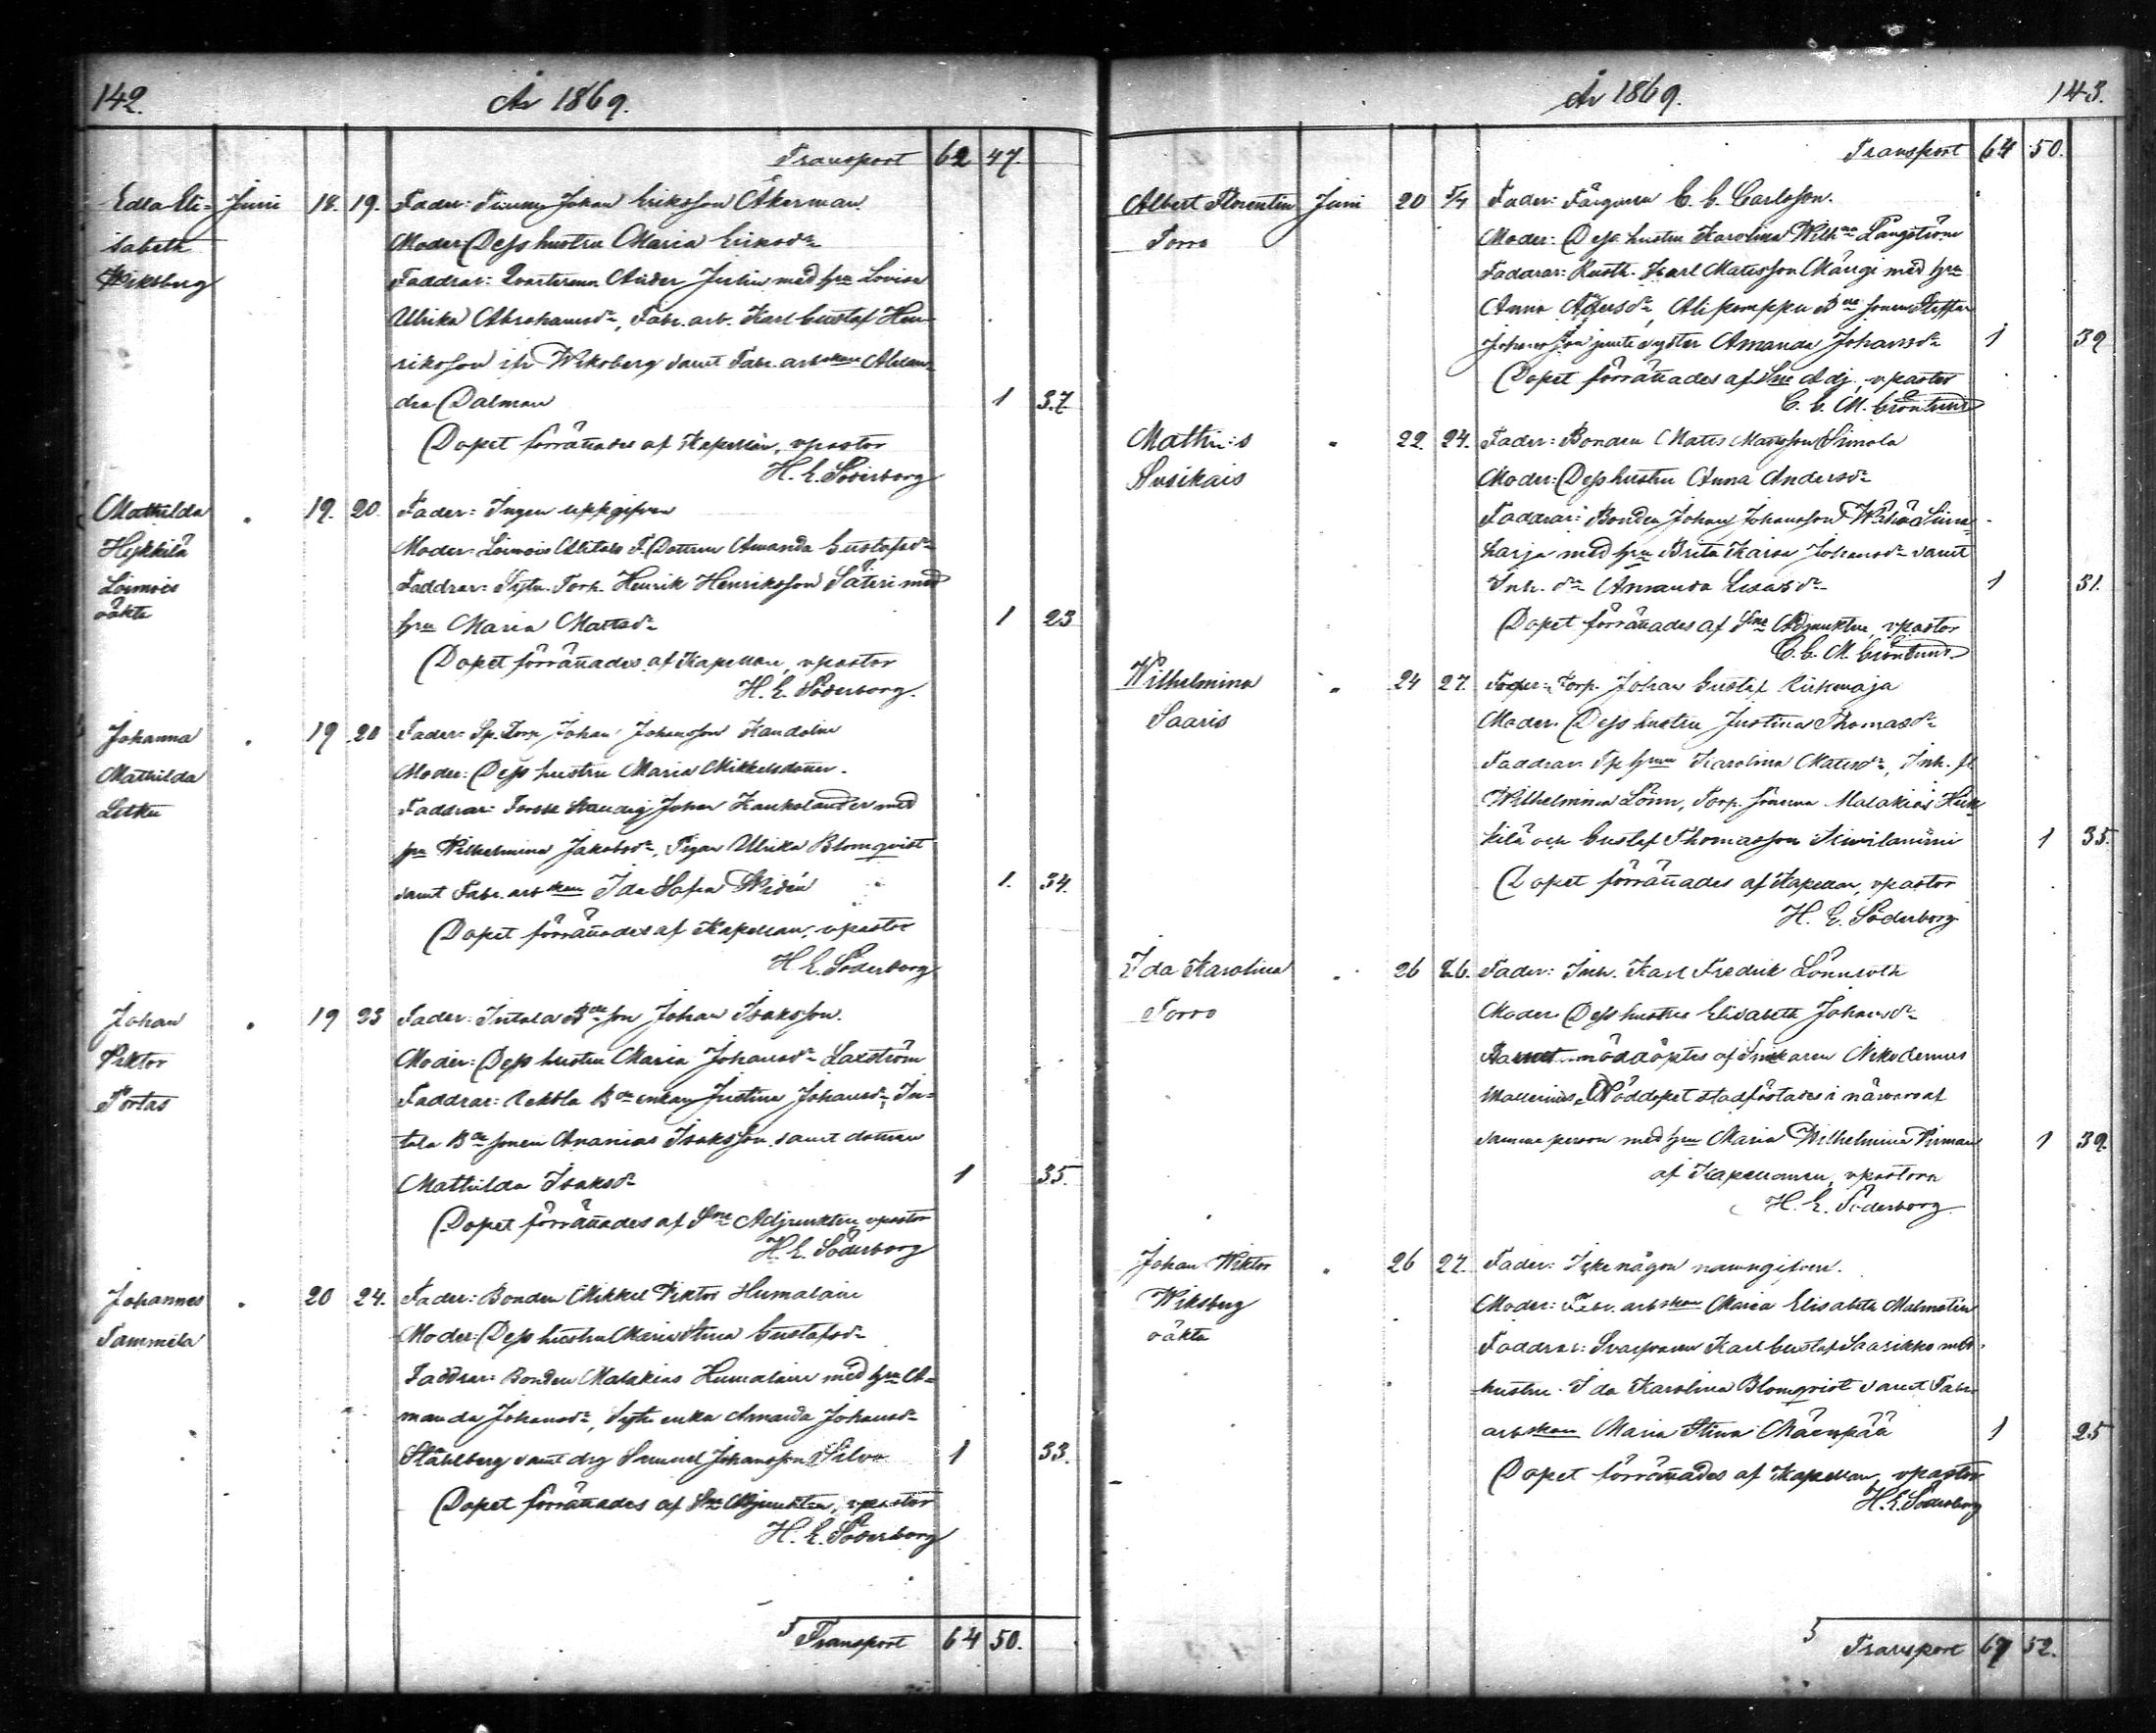 142. År 1869.
Transport 62 47.
Edla Eli- Juni 18. 19. Fader: Johan Eriksson Åkerman
sabeth Moder: Dess hustru Maria Eriksdr
Wiksberg Faddrar: Anders Julin med hru Lovisa
Ulrika Abrahamsdr, Fabr. arb. Karl Gustaf Hen-
riksson ifr Wiksberg samt Fabr. arbskan Alexan-
dra Dalman 1 37
Dopet förrättades af Kapellan, vpastor
H. E. Söderborg
Mathilda " 19. 20. Fader: Ingen uppgifven
Heikkilä Moder: Loimois Alitalo T. Dottren Amanda Gustafsdr
Loimois Faddrar: Sytn. Torp. Henrik Henriksson Säteri med
oäkta hru Maria Mattsdr 1 23
Dopet förrättades af Kapellan, vpastor
H. E. Söderborg.
Johanna " 19 20 Fader: Sp. Torp Johan Johansson Kandolin
Mathilda Moder: Dess hustru Maria Mikkelsdotter.
Letku Faddrar: Johan Kaukolander med
hru Wilhelmina Jakobsdr, Pigan Ulrika Blomqvist
samt Fabr. arbskan Ida Sofia Widén 1. 34.
Dopet förrättades af Kapellan, vpastor
H. E. Söderborg
Johan " 19 23 Fader: Intala Bde son Johan Isaksson.
Viktor Moder: Dess hustru Maria Johansdr Laxström
Portas Faddrar: Rekola Bde enkan Justina Johansdr, In-
tala Bde sonen Ananias Isaksson samt dottren
Mathilda Isaksdr 1 35.
Dopet förrättades af Sne Adjunkten vpastor
H. E. Söderborg
Johannes " 20 24. Fader: Bonden Mikkel Viktor Humalain
Tammela Moder: Dess hustru Maria Stina Gustafsdr
Faddrar: Bonden Malakias Humalain med hru A-
manda Johansdr, Sytn enka Amanda Johansdr
Ståhlberg samt drg Samuel Johansson Silvo 1 33.
Dopet förrättades af Sne Adjunkten, vpastor
H. E. Söderborg
5 Transport 64 50.
År 1869. 143.
Transport 64 50.
Albert Florentin Juni 20 5/7 Fader: Färgaren C. C. Carlsson.
Torro Moder: Dess hustru Karolina Wilhna Långström
Faddrar: Rusth. Karl Matsson Mängi med hru
Anna Agersdr, Alipomppu Bde sonen Steffan
Johansson jemte syster Amanda Johansdr 1 39
Dopet förrättades af Sne Adj. vpastor
C. C. M. Grönlund
Mathias " 22. 24. Fader: Bonden Mats Matsson Simola
Susikais Moder: Dess hustru Anna Andersdr
Faddrar: Bonden Johan Johansson Wähä Sirn-
harja med hru Brita Kaisa Johansdr samt
Inh. dr Amanda Lucasdr 1 31.
Dopet förrättades af Sne Adjunkten, vpastor
C. C. M. Grönlund
Wilhelmina " 24 27. Fader: Torp. Johan Gustaf
Saaris Moder: Dess hustru Justina Thomasdr
Faddrar: Karolina Matsdr, Inh. fl
Wilhelmina Lönn, Torp. sönerna Malakias Heik-
kilä och Gustaf Thomasson 1 35.
Dopet förrättades af Kapellan, vpastor
H. E. Söderborg
Ida Karolina " 26 26. Fader: Inh. Karl Fredrik Lönnroth
Torro Moder: Dess hustru Elisabeth Johansdr
Barnet nöddöptes af Snickaren Nikodemus
Mallenius. Nöddopet stadfästades i närvaro af
samma person med hru Maria Wilhelmina Virman 1 39.
af Kapellanen, vpastorn
H. E. Söderborg
Johan Wiktor " 26 27. Fader: Icke någon namngifven.
Wiksberg Moder: Fabr. arbskan Maria Elisabeth Malmstén
oäkta Faddrar: Svarfvaren Karl Gustaf Saarikko med
hustru Ida Karolina Blomqvist samt Fabr.
arbskan Maria Stina Mäenpää 1 25
Dopet förrättades af Kapellan, vpastor
H. E. Söderborg
5 Transport 67 52.